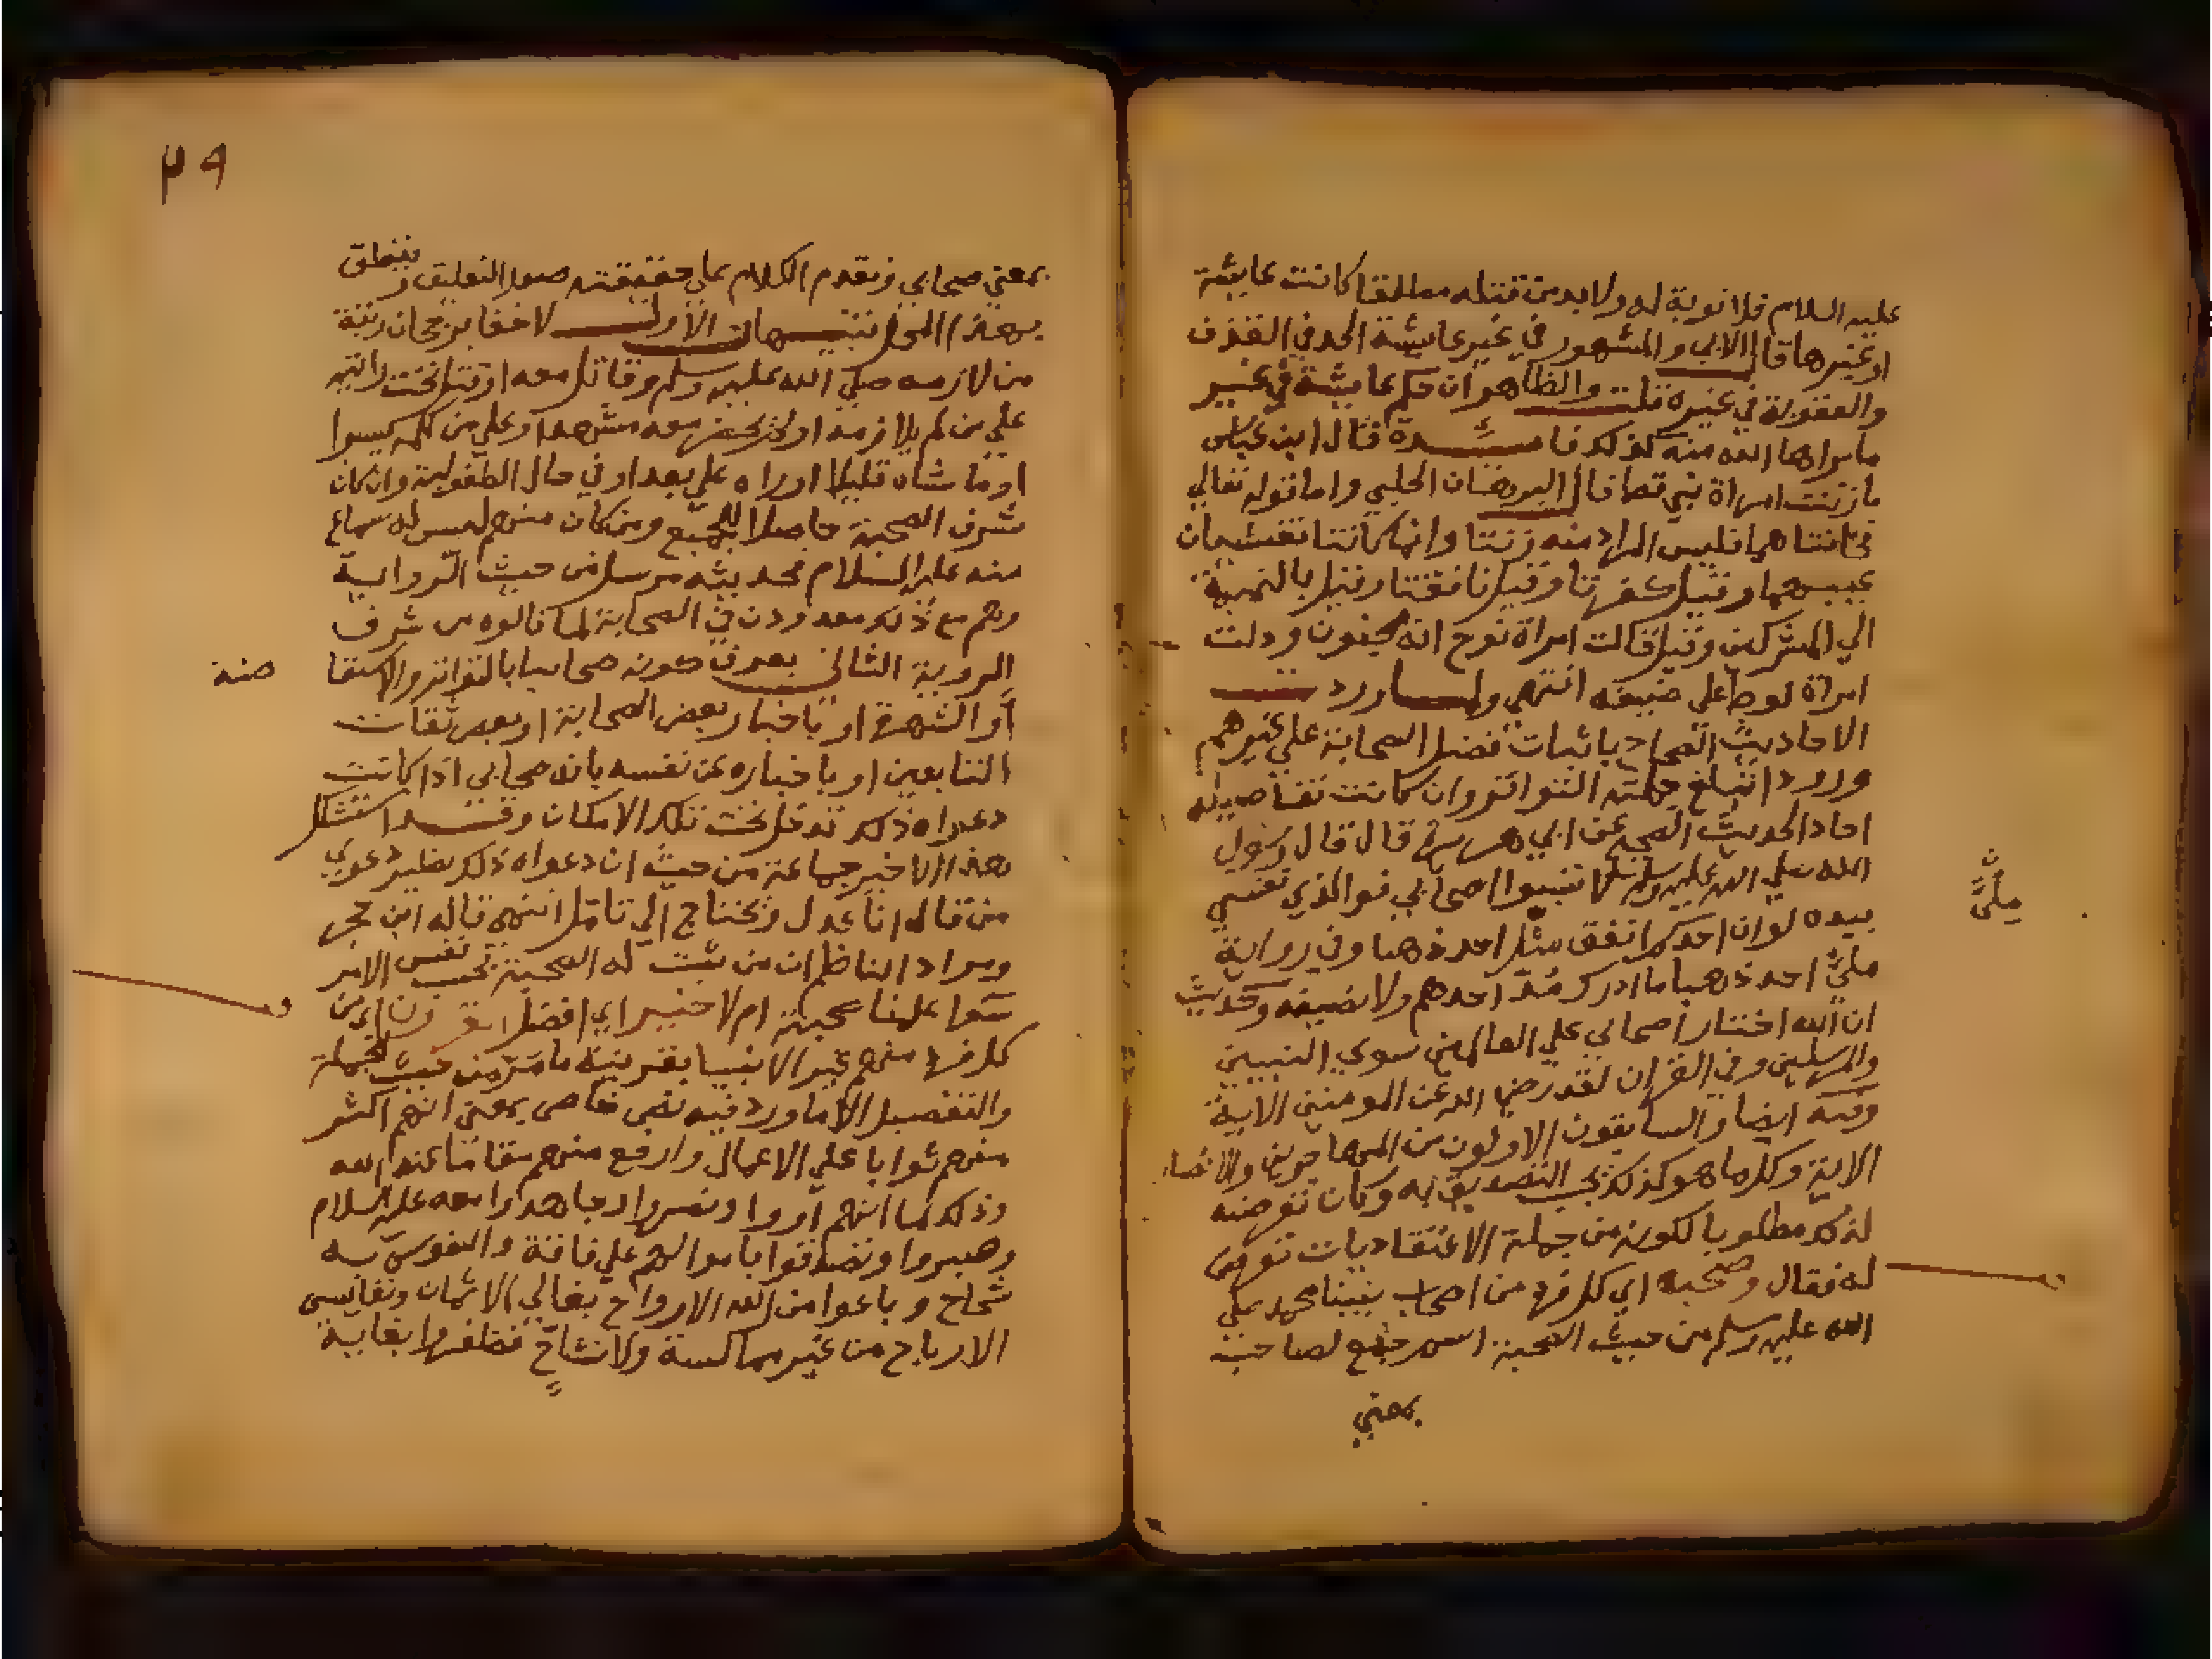 عليه السلام فلا توبة له ولا بد من قتله مطلقا كانت عايشة
او غيرها قال الابي والمشهور في غير عايشة الحد في القذف
والعقوبة في غيره قلت والظاهر ان حكم عايشة في غير
ما براها الله منه كذلك فائدة قال ابن عباس
ما زنت امراة نبي قط قال البرهان الحلبي واما قوله تعالي
فخانتاهما فليس المراد منه زنتا وانما كانتا تفشيان
عيبهما وقيل كفرتا وقيل نافقتا وقيل بالنميمة
الي المشركين وقيل قالت امراة نوح انه مجنون ودلت
امراة لوط علي ضيفه انتهي ولما وردت
الاحاديث الصحاح باثبات فضل الصحابة علي غيرهم
ورودا تبلغ جملته التواتر وان كانت تفاصيله
احادا لحديث الصحيح عن ابي هريرة قال قال رسول
الله صلي الله عليه وسلم لا تسبوا اصحابي فوالذي نفسي
بيده لو ان احدكم انفق مثل احد ذهبا وفي رواية
ملئ
ملئ احد ذهبا ما ادرك مد احدهم ولا نصيفه وحديث
ان الله اختار اصحابي علي العالمين سوي النبيين
والمرسلين وفي القران لقد رضي الله عن المومنين الاية
وفيه ايضا والسابقون الاولون من المهاجرين والانصار
الاية وكلما هو كذلك يجب التصديق به وكان تعرضه
لذلك مطلوبا لكونه من جملة الاعتقاديات تعرض
له فقال وصحبه اي كل فرد من اصحاب نبينا محمد صلي
الله عليه وسلم من حيث الصحبة اسم جمع لصاحب
بمعني
٢٩
بمعني صحابي وتقدم الكلام علي حقيقته صدر التعليق ويتعلق
بهذا المحل تنبيهان الاول لا خفا برجحان رتبة
من لازمه صلي الله عليه وسلم وقاتل معه او قتل تحت رايته
علي من لم يلازمه او لم يحضر معه مشهدا وعلي من كلمه يسيرا
او ماشاه قليلا او راه علي بعد او في حال الطفولية وان كان
شرف الصحبة حاصلا للجميع ومن كان منهم ليس له سماع
منه عليه السلام فحديثه مرسل من حيث الرواية
وهم مع ذلك معدودن في الصحابة لما نالوه من شرف
الروية الثاني يعرف كونه صحابيا بالتواتر والاستفا
ضة
او الشهرة او باخبار بعض الصحابة او بعض ثقات
التابعين او باخباره عن نفسه بانه صحابي اذا كانت
دعواه ذلك تدخل تحت تلك الامكان وقد استشكل
هذا الاخير جماعة من حيث ان دعواه ذلك نظير دعوي
من قال انا عدل ويحتاج الي تامل انتهي قاله ابن حجر
ومراد الناظم ان من ثبت له الصحبة بحسب نفس الامر
سوا علمنا صحبته ام لا خير اي افضل القرون اي من
كل فرد منهم غير الانبيا بقرينة ما مر من حيث الجملة
والتفصيل الا ما ورد فيه نص خاص بمعني انهم اكثر
منهم ثوابا علي الاعمال وارفع منهم مقاما عند الله
وذلك لما انهم اووا ونصروا وجاهدوا معه عليه السلام
وصبروا وتصدقوا باموالهم علي فاقة والنفوس به
شحاح وباعوا من الله الارواح بغالي الاثمان ونفايس
الارباح من غير مماكسة ولا تشاح فظفروا بغاية